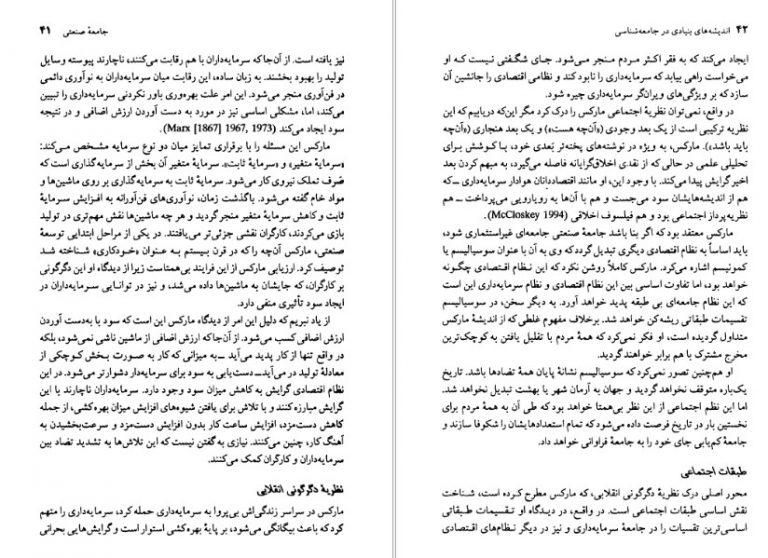 جامعهٔ صنعتی ۴۱
نیز یافته است. از آن‌جا که سرمایه‌داران با هم رقابت می‌کنند، ناچارند پیوسته وسایل
تولید را بهبود بخشند. به زبان ساده، این رقابت میان سرمایه‌داران به نوآوری دائمی
در فن‌آوری منجر می‌شود. این امر علت بهره‌وری باور نکردنی سرمایه‌داری را تبیین
می‌کند، اما، مشکلی اساسی نیز در مورد به دست آوردن ارزش اضافی و در نتیجه
سود ایجاد می‌کند (Marx [1867] 1967, 1973).
مارکس این مسئله را با برقراری تمایز میان دو نوع سرمایه مشخص می‌کند:
«سرمایهٔ متغیر» و «سرمایهٔ ثابت». سرمایهٔ متغیر آن بخش از سرمایه‌گذاری است که
صَرف تملک نیروی کار می‌شود. سرمایهٔ ثابت به سرمایه‌گذاری بر روی ماشین‌ها و
مواد خام گفته می‌شود. باگذشت زمان، نوآوری‌های فن‌آورانه به افزایش سرمایهٔ
ثابت و کاهش سرمایهٔ متغیر منجر گردید و هر چه ماشین‌ها نقش مهم‌تری در تولید
بازی می‌کردند، کارگران نقشی جزئی‌تر می‌یافتند. در یکی از مراحل ابتدایی توسعهٔ
صنعتی، مارکس آن‌چه را که در قرن بیستم به عنوان «خودکاری» شناخته شد
توصیف کرد. ارزیابی مارکس از این فرایند بی‌همتاست زیرا از دیدگاه او این دگرگونی
بر کارگران، که جایشان به ماشین‌ها داده می‌شد، و نیز در توانایی سرمایه‌داران در
ایجاد سود تأثیری منفی دارد.
از یاد نبریم که دلیل این امر از دیدگاه مارکس این است که سود با به‌دست آوردن
ارزش اضافی کسب می‌شود. از آن‌جا که ارزش اضافی از ماشین ناشی نمی‌شود، بلکه
در واقع تنها از کار پدید می‌آید ــ به میزانی که کار به صورت بخش کوچکی از
معادلهٔ تولید در می‌آید ــ دست‌یابی به سود برای سرمایه‌دار دشوارتر می‌شود. در این
نظام اقتصادی گرایش به کاهش میزان سود وجود دارد. سرمایه‌داران ناچارند با این
گرایش مبارزه کنند و با تلاش برای یافتن شیوه‌های افزایش میزان بهره‌کشی، از جمله
کاهش دست‌مزد، افزایش ساعت کار بدون افزایش دست‌مزد و سرعت‌بخشیدن به
آهنگ کار، چنین می‌کنند. نیازی به گفتن نیست که این تلاش‌ها به تشدید تضاد بین
سرمایه‌داران و کارگران کمک می‌کنند.
نظریهٔ دگرگونی انقلابی
مارکس در سراسر زندگی‌اش بی‌پروا به سرمایه‌داری حمله کرد، سرمایه‌داری را متهم
کرد که باعث بیگانگی می‌شود، بر پایهٔ بهره‌کشی استوار است و گرایش‌هایی بحرانی
۴۲ اندیشه‌های بنیادی در جامعه‌شناسی
ایجاد می‌کند که به فقر اکثر مردم منجر می‌شود. جای شگفتی نیست که او
می‌خواست راهی بیابد که سرمایه‌داری را نابود کند و نظامی اقتصادی را جانشین آن
سازد که بر ویژگی‌های ویران‌گر سرمایه‌داری چیره شود.
در واقع، نمی‌توان نظریهٔ اجتماعی مارکس را درک کرد مگر این‌که دریابیم که این
نظریه ترکیبی است از یک بعد وجودی («آن‌چه هست») و یک بعد هنجاری («آن‌چه
باید باشد»). مارکس، به ویژه در نوشته‌های پخته‌تر بَعدی خود، با کوشش برای
تحلیلی علمی در حالی که از نقدی اخلاق‌گرایانه فاصله می‌گیرد، به مبهم کردن بعد
اخیر گرایش پیدا می‌کند. با وجود این، او مانند اقتصاددانان هوادار سرمایه‌داری ــ که
هم از اندیشه‌هایشان سود می‌جست و هم با آن‌ها به رویارویی می‌پرداخت ــ هم
نظریه‌پرداز اجتماعی بود و هم فیلسوف اخلاقی (McCloskey 1994).
مارکس معتقد بود که اگر بنا باشد جامعهٔ صنعتی جامعه‌ای غیراستثماری شود،
باید اساساً به نظام اقتصادی دیگری تبدیل گردد که وی به آن با عنوان سوسیالیسم یا
کمونیسم اشاره می‌کرد. مارکس کاملاً روشن نکرد که این نظام اقتصادی چگونه
خواهد بود، اما تفاوت اساسی بین این نظام اقتصادی و نظام سرمایه‌داری این است
که این نظام جامعه‌ای بی طبقه پدید خواهد آورد. به دیگر سخن، در سوسیالیسم
تقسیمات طبقاتی ریشه‌کن خواهد شد. برخلاف مفهوم غلطی که از اندیشهٔ مارکس
متداول گردیده است، او فکر نمی‌کرد که همهٔ مردم با تقلیل یافتن به کوچک‌ترین
مخرج مشترک با هم برابر خواهند گردید.
او هم‌چنین تصور نمی‌کرد که سوسیالیسم نشانهٔ پایان همهٔ تضادها باشد. تاریخ
یک‌باره متوقف نخواهد گردید و جهان به آرمان شهر یا بهشت تبدیل نخواهد شد.
اما این نظم اجتماعی از این نظر بی‌همتا خواهد بود که طی آن به همهٔ مردم برای
نخستین بار در تاریخ فرصت داده می‌شود که تمام استعدادهایشان را شکوفا سازند و
جامعهٔ کم‌یابی جای خود را به جامعهٔ فراوانی خواهد داد.
طبقات اجتماعی
محور اصلی درک نظریهٔ دگرگونی انقلابی، که مارکس مطرح کرده است، شناخت
نقش اساسی طبقات اجتماعی است. در واقع، در دیدگاه او تقسیمات طبقاتی
اساسی‌ترین تقسیات را در جامعهٔ سرمایه‌داری و نیز در دیگر نظام‌های اقتصادی